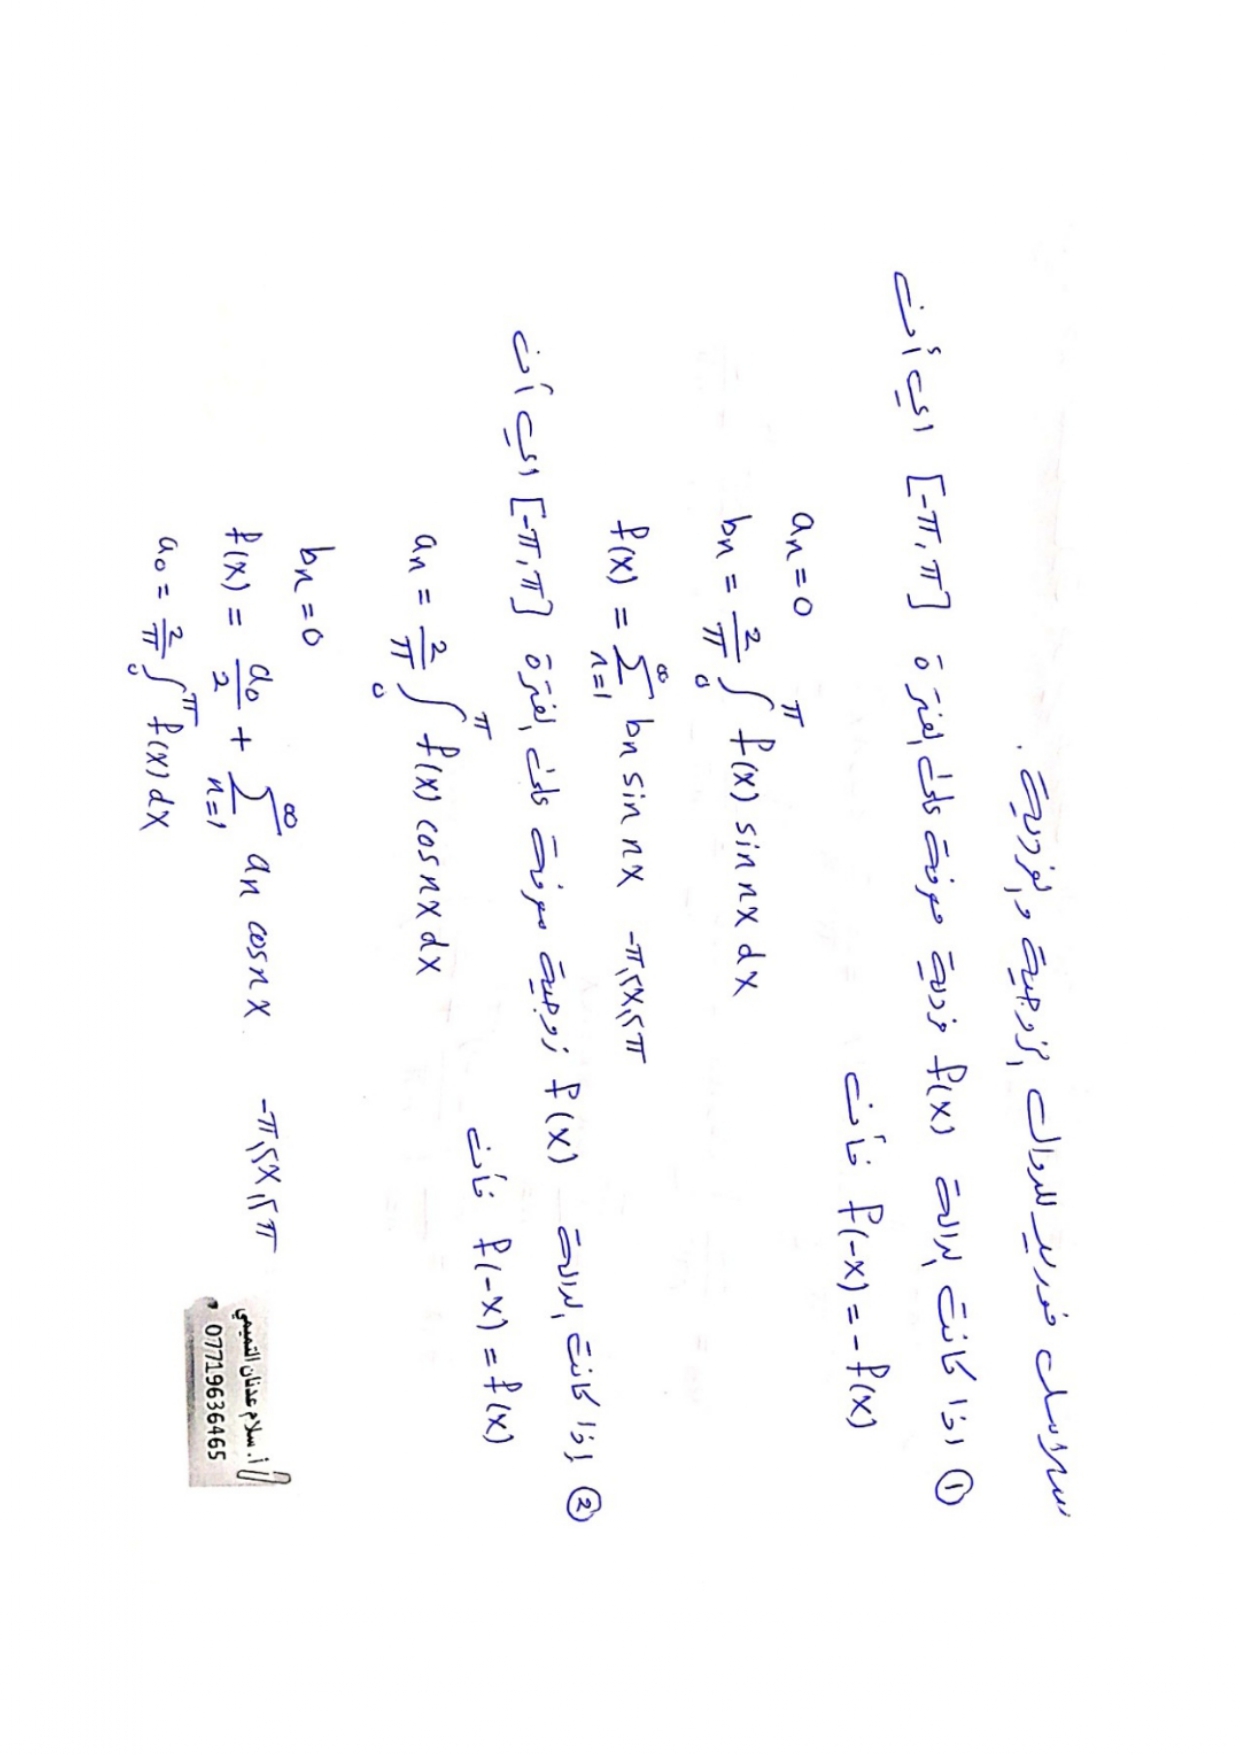 سلاسل فورير للدوال الزوجية والفردية .
① اذا كانت الدالة f(x) فردية معرفة على الفترة [-π,π] اي أن
f(-x) = -f(x) فأن
an = 0
bn = 2/π ∫₀^π f(x) sin nx dx
f(x) = ∑_{n=1}^∞ bn sin nx -π≤x≤π
② اذا كانت الدالة f(x) زوجية معرفة على الفترة [-π,π] اي أن
f(-x) = f(x) فأن
an = 2/π ∫₀^π f(x) cos nx dx
bn = 0
f(x) = a₀/2 + ∑_{n=1}^∞ an cos nx -π≤x≤π
a₀ = 2/π ∫₀^π f(x) dx
أ. سلام عدنان التميمي
07719636465